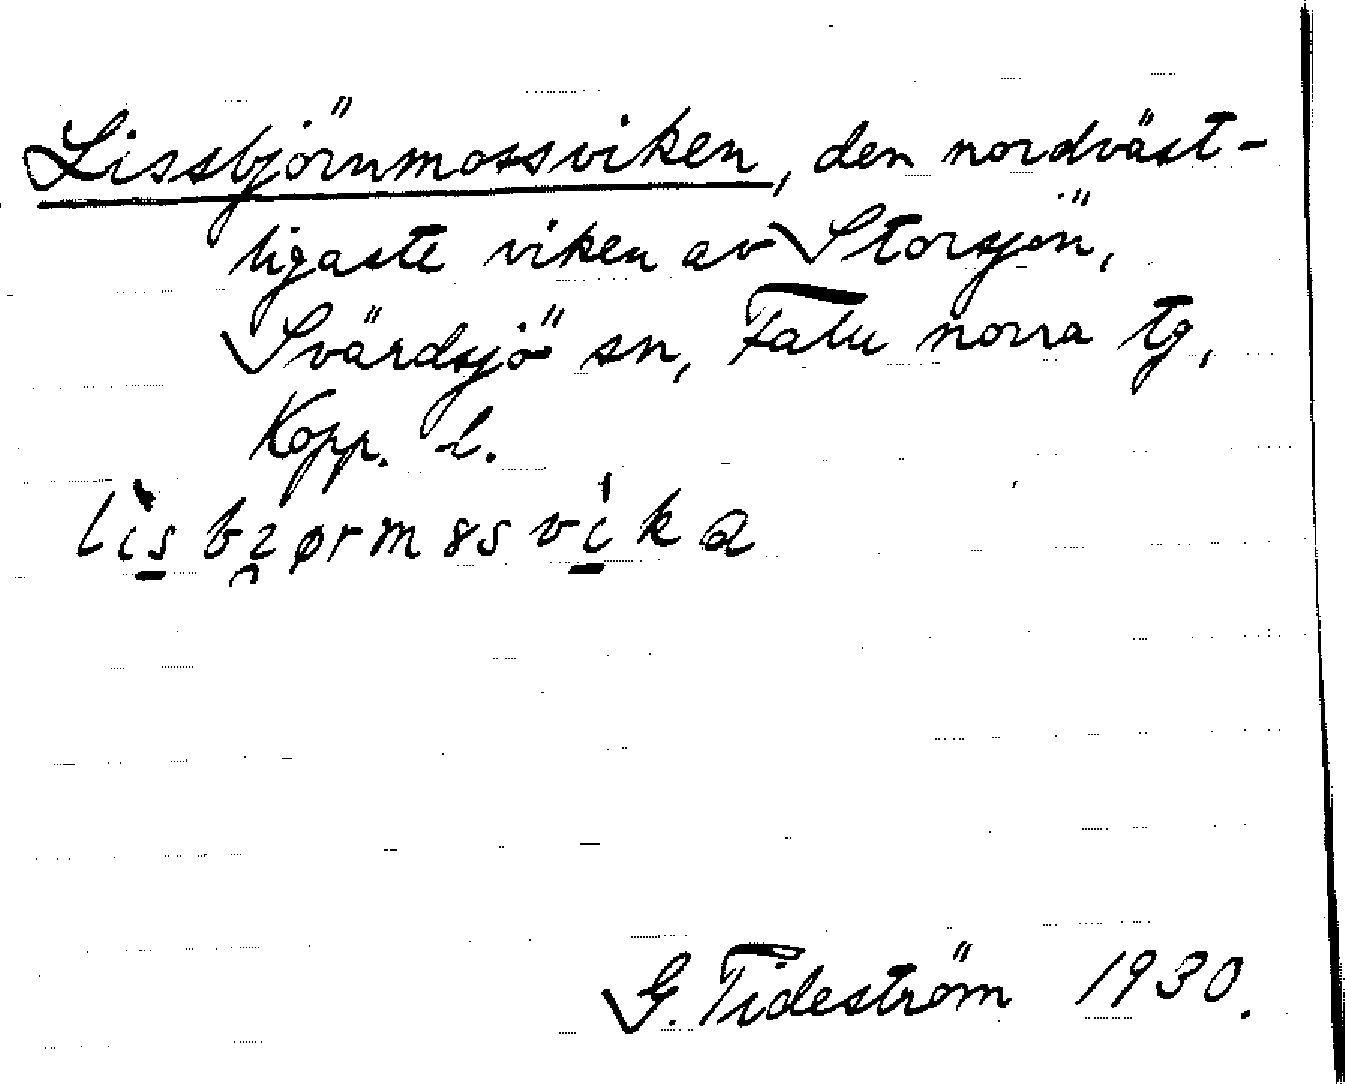 Lissbjörnmossviken, den nordväst-
ligaste viken av Storsjön,
Svärdsjö sn, Falu norra tg,
Kopp. l.
G. Tideström 1930.